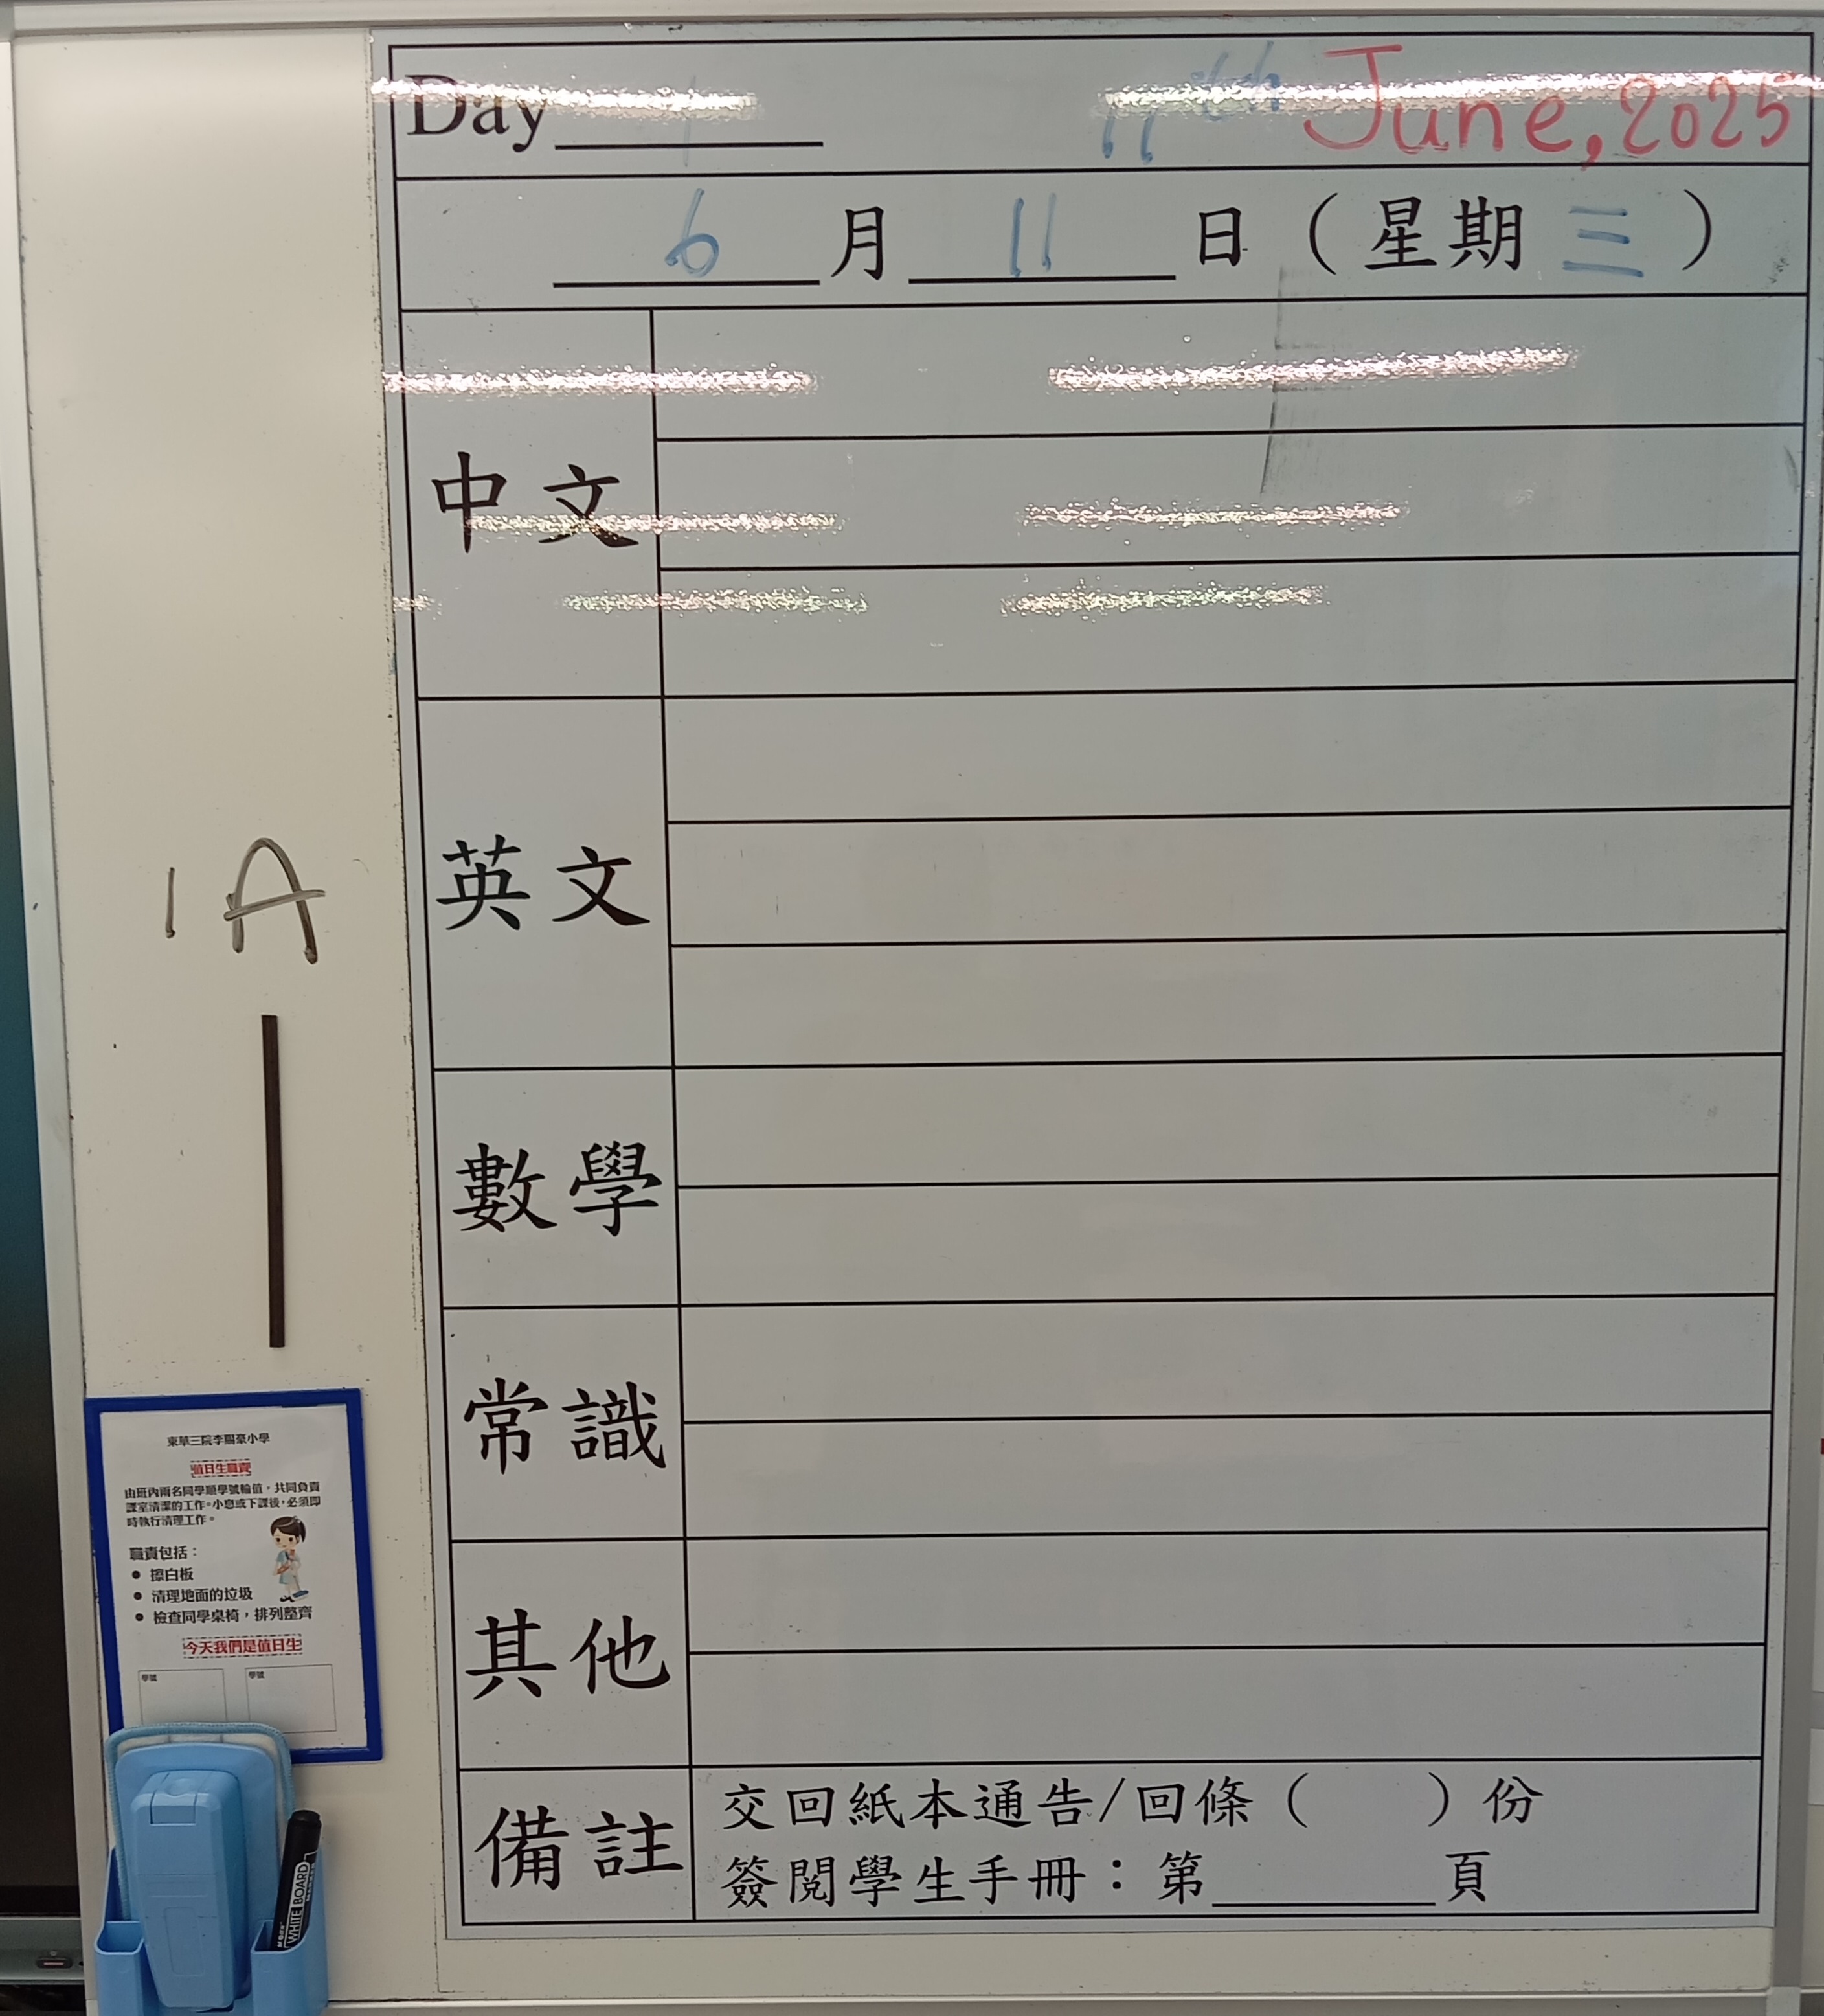 Day 1 11th June, 2025
6 月 11 日 (星期 三)
中文
英文
數學
常識
其他
備註
交回紙本通告/回條( )份
簽閱學生手冊:第 頁
1A
東華三院李賜豪小學
值日生職責
由班內兩名同學順學號輪值,共同負責
課室清潔的工作。小息或下課後,必須即
時執行清理工作。
職責包括:
● 擦白板
● 清理地面的垃圾
● 檢查同學桌椅,排列整齊
今天我們是值日生
學號 學號
WHITE BOARD